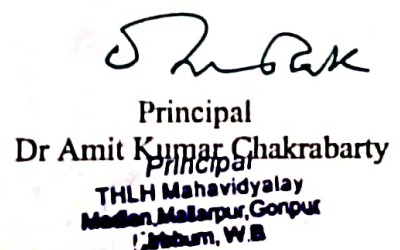 Principal
Dr Amit Kumar Chakrabarty
Principal
THLH Mahavidyalay
Madian,Mallarpur,Gonpur
W.B